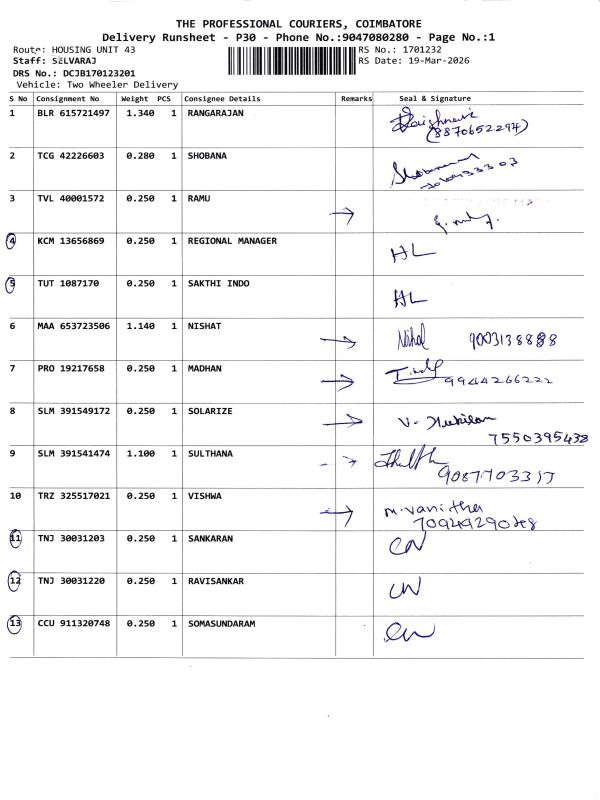 THE PROFESSIONAL COURIERS, COIMBATORE
Delivery Runsheet - P30 - Phone No.:9047080280 - Page No.:1
Route: HOUSING UNIT 43 RS No.: 1701232
Staff: SELVARAJ RS Date: 19-Mar-2026
DRS No.: DCJB170123201
Vehicle: Two Wheeler Delivery
S No Consignment No Weight PCS Consignee Details Remarks Seal & Signature
1 BLR 615721497 1.340 1 RANGARAJAN
(8870652294)
2 TCG 42226603 0.280 1 SHOBANA
3 TVL 40001572 0.250 1 RAMU
4 KCM 13656869 0.250 1 REGIONAL MANAGER HL
5 TUT 1087170 0.250 1 SAKTHI INDO HL
6 MAA 653723506 1.140 1 NISHAT 9003138888
7 PRO 19217658 0.250 1 MADHAN 9944266222
8 SLM 391549172 0.250 1 SOLARIZE V-
7550395438
9 SLM 391541474 1.100 1 SULTHANA
10 TRZ 325517021 0.250 1 VISHWA M.Vanitha
11 TNJ 30031203 0.250 1 SANKARAN
12 TNJ 30031220 0.250 1 RAVISANKAR
13 CCU 911320748 0.250 1 SOMASUNDARAM